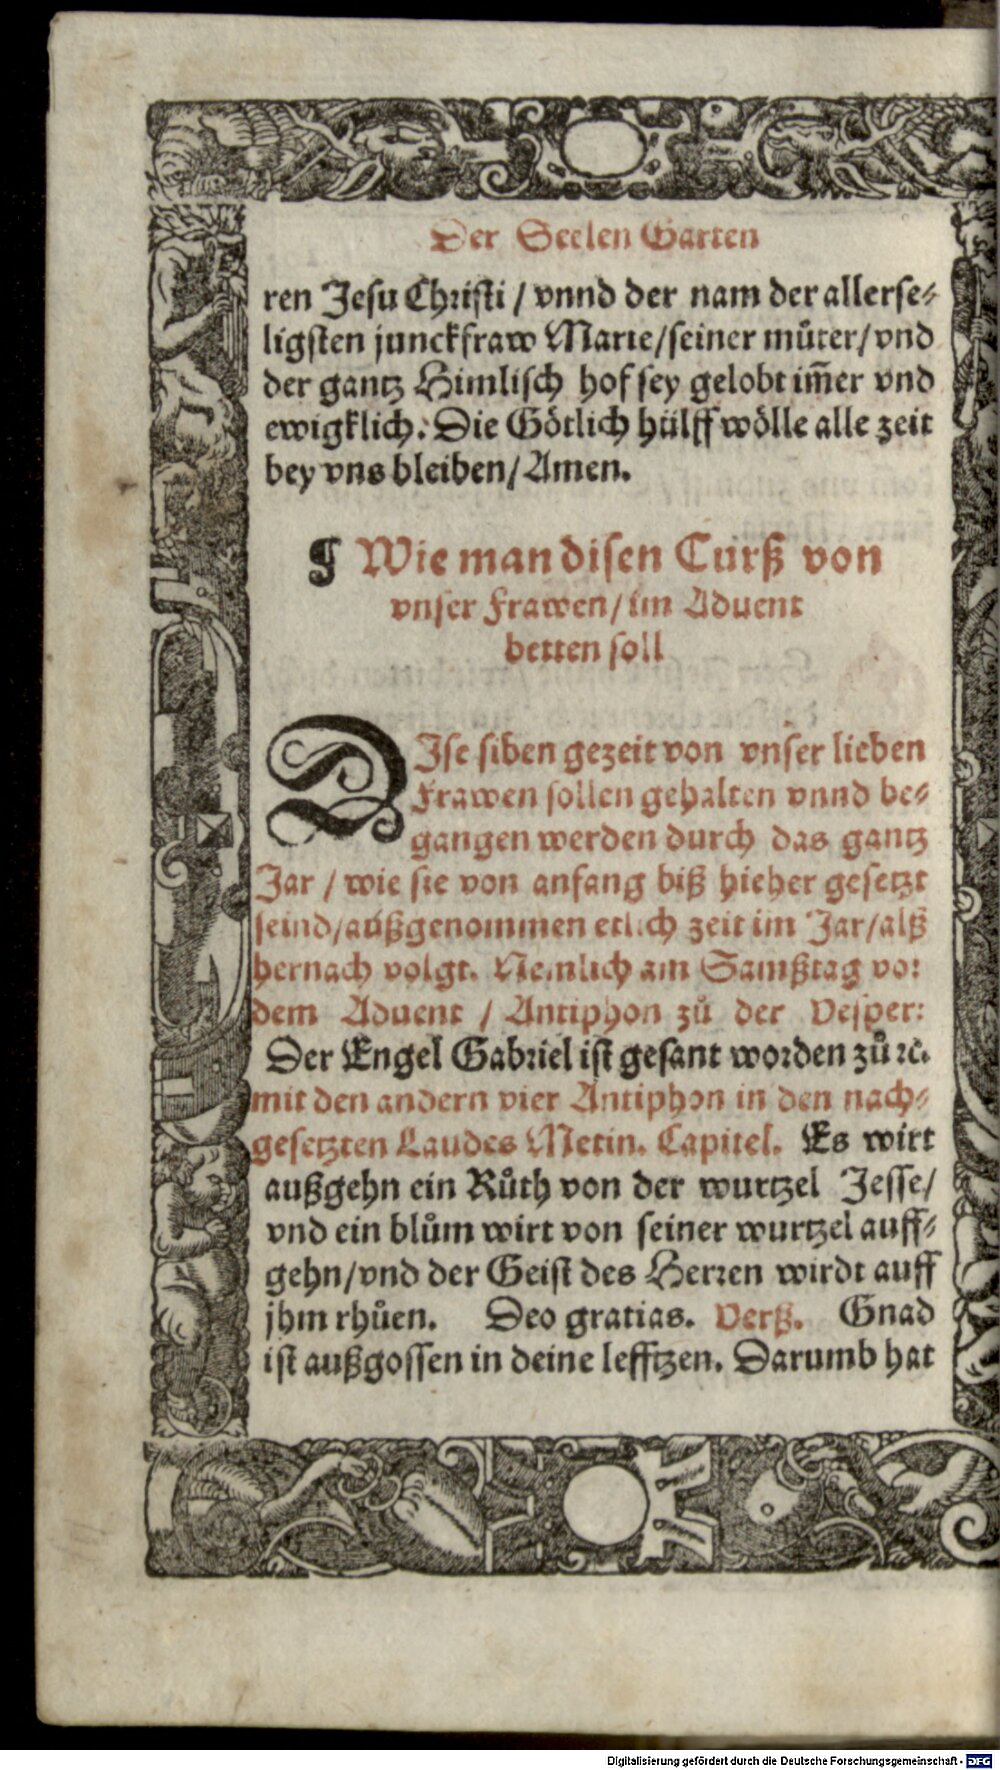 Der Seelen Garten
ren Jesu Christi / vnnd der nam der allerse⸗
ligsten junckfraw Marie/seiner můter/vnd
der gantz Himlisch hof sey gelobt im̃er vnd
ewigklich. Die Götlich hülff wölle alle zeit
bey vns bleiben/Amen.
¶ Wie man disen Curß von
vnser Frawen/im Aduent
betten soll
DIse siben gezeit von vnser lieben
Frawen sollen gehalten vnnd be⸗
gangen werden durch das gantz
Jar / wie sie von anfang biß hieher gesetzt
seind/außgenommen etlich zeit im Jar/alß
hernach volgt. Nemlich am Samßtag vor
dem Aduent / Antiphon zů der Vesper:
Der Engel Gabriel ist gesant worden zů ꝛc.
mit den andern vier Antiphon in den nach⸗
gesetzten Laudes Metin. Capitel. Es wirt
außgehn ein Růth von der wurtzel Jesse/
vnd ein blům wirt von seiner wurtzel auff⸗
gehn/vnd der Geist des Herren wirdt auff
jhm rhůen. Deo gratias. Verß. Gnad
ist außgossen in deine lefftzen. Darumb hat
Digitalisierung gefördert durch die Deutsche Forschungsgemeinschaft - DFG